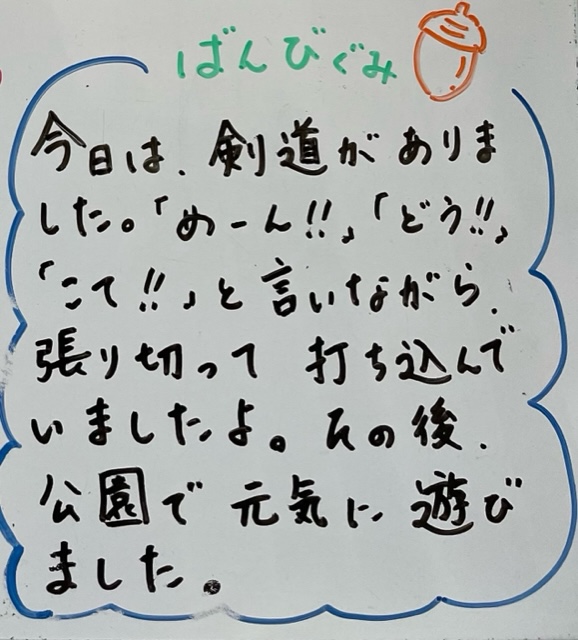 ばんびぐみ
今日は、剣道がありま
した。「めーん!!」「どう!!」
「こて!!」と言いながら、
張り切って 打ち込んで
いましたよ。その後、
公園で 元気に 遊び
ました。